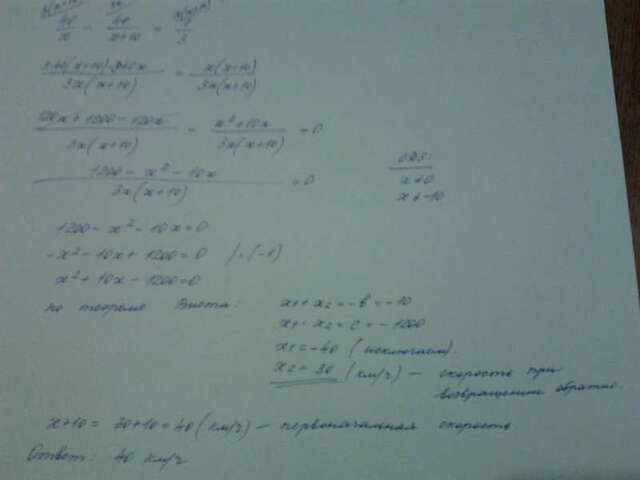 40/x - 40/(x+10) = 1/3
3·40(x+10)-3·40x / 3x(x+10) = x(x+10) / 3x(x+10)
120x+1200-120x / 3x(x+10) - x²+10x / 3x(x+10) = 0
1200-x²-10x / 3x(x+10) = 0
ОДЗ:
x≠0
x≠-10
1200-x²-10x=0
-x²-10x+1200=0 /·(-1)
x²+10x-1200=0
по теореме Виета: x₁+x₂=-b=-10
x₁·x₂=c=-1200
x₁=-40 (исключаем).
x₂=30 (км/ч) - скорость при
возвращении обратно.
x+10=30+10=40(км/ч)-первоначальная скорость
Ответ: 40 км/ч